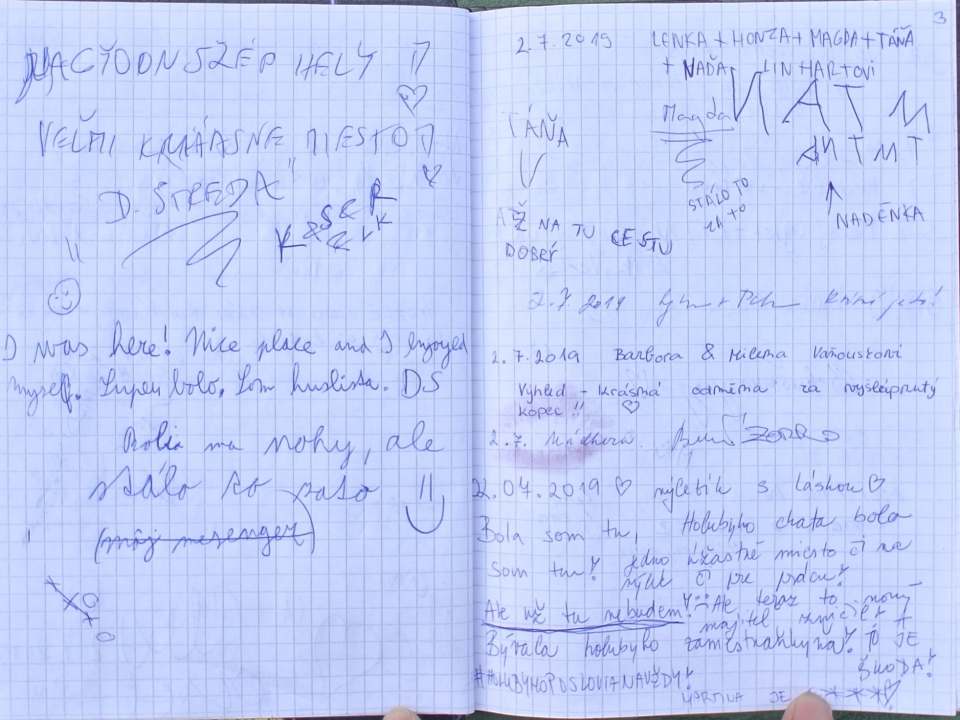 NAGYON SZÉP HELY !!
VEĽMI KRÁÁSNE MIESTO !!
D. STREDA
I was here! Nice place and I enjoyed
myself. Super bolo. Som huslista. DS
Bolia ma nohy, ale
stálo to zato !!
(môj mesenger)
3
2.7.2019 LENKA + HONZA + MAGDA + TÁŇA
+ NAĎA LINHARTOVI
TÁŇA
Magda
NATM
ANTMT
STÁLO TO
ZA TO
NADĚNKA
AŽ NA TU CESTU
DOBRÝ
2.7.2019
2.7.2019 Barbora & Milena Vaňoustovi
Výhled - krásná odměna za vyšlápnutý
kopec !! ♡
2.7.
22.04.2019 ♡ výletík s láskou ♡
Bola som tu, Holubyho chata bola
som tu! jedno úžastné miesto či na
výlet či pre prácu!
Ale už tu nebudem! Ale teraz to nový
majitel zničil!
Bývala holubyho zamestnankyňa! TO JE
ŠKODA!
#HOLUBYHOPOSLOVIANAVŽDY!
MARTINA JE ****♡